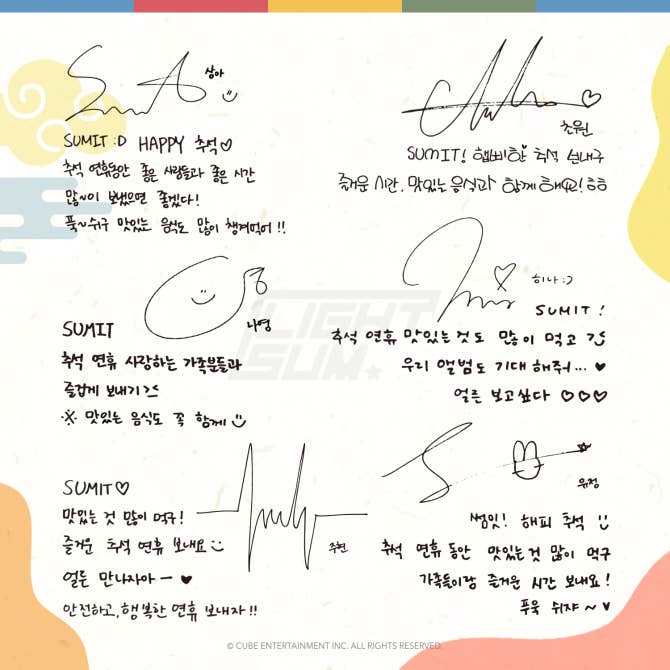 상아 :)
SUMIT :D HAPPY 추석♡
추석 연휴동안 좋은 사람들과 좋은 시간
많~이 보냈으면 좋겠다!
푹~쉬구 맛있는 음식도 많이 챙겨먹어!!
초원
SUMIT! 해삐 추석 보내구
즐거운 시간, 맛있는 음식과 함께 해요!ㅎㅎ
나영
SUMIT
추석 연휴 사랑하는 가족분들과
즐겁게 보내기><
※ 맛있는 음식도 꼭 함께 :)
히나 :)
SUMIT!
추석 연휴 맛있는것도 많이 먹고
우리 앨범도 기대해줘... ♥
얼른 보고싶다 ♡♡♡
LIGHT
SUM★
주현
SUMIT♡
맛있는 것 많이 먹구!
즐거운 추석 연휴 보내요 :)
얼른 만나자아 ー ♥
안전하고, 행복한 연휴 보내자!!
유정
썸잇! 해피 추석 :)
추석 연휴 동안 맛있는 것 많이 먹구
가족들이랑 즐거운 시간 보내요!
푸욱 쉬쟈~♥
© CUBE ENTERTAINMENT INC. ALL RIGHTS RESERVED.